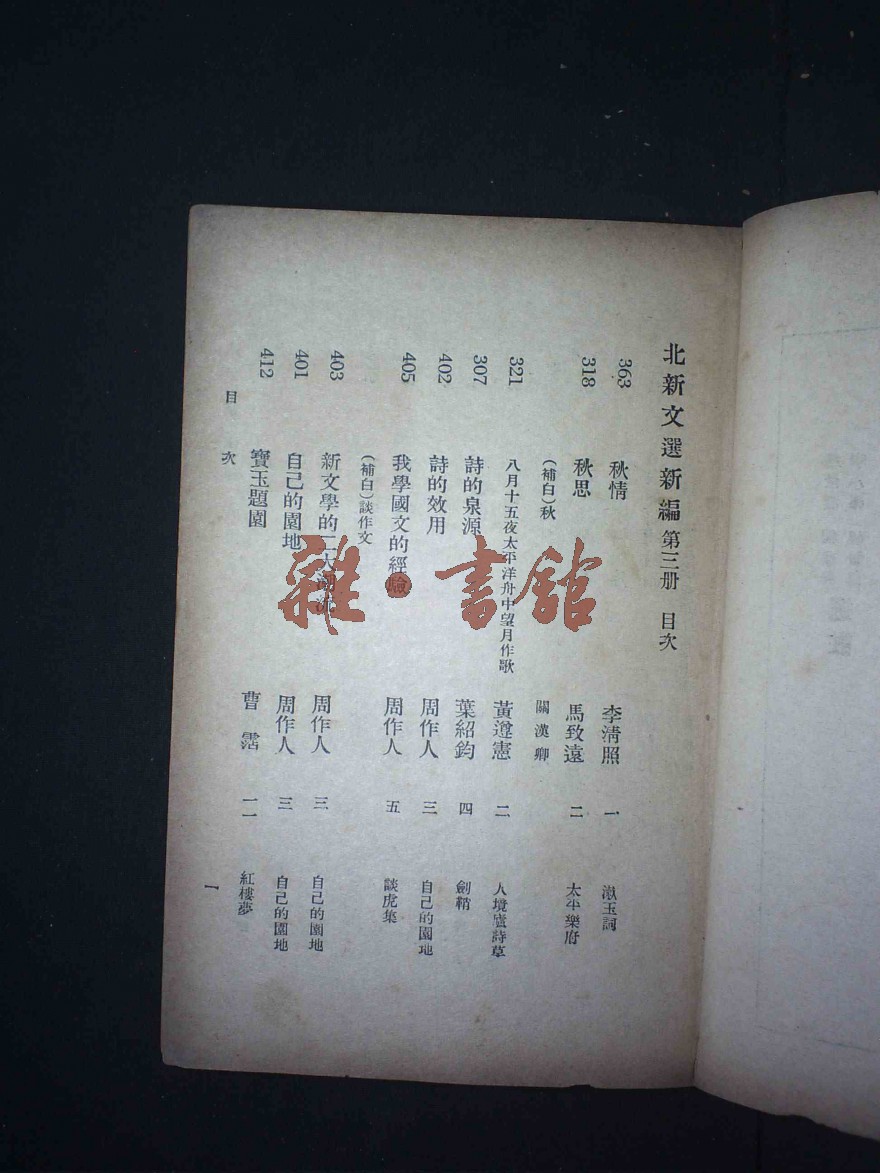 北新文選新編 第三册 目次
363 秋情 李清照 一 漱玉詞
318 秋思 馬致遠 二 太平樂府
(補白)秋 關漢卿
321 八月十五夜太平洋舟中望月作歌 黃遵憲 二 人境廬詩草
307 詩的泉源 葉紹鈞 四 劍鞘
402 詩的效用 周作人 三 自己的園地
405 我學國文的經驗 周作人 五 談虎集
(補白)談作文
403 新文學的二大潮流 周作人 三 自己的園地
401 自己的園地 周作人 三 自己的園地
412 寶玉題園 曹霑 一一 紅樓夢
目次
一
雜·書館